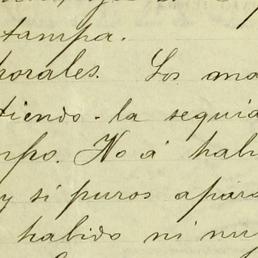 stampa.
porales. Los ma
diendo - la sequia
mpo. No á hab
y si puros apara
habido ni nu